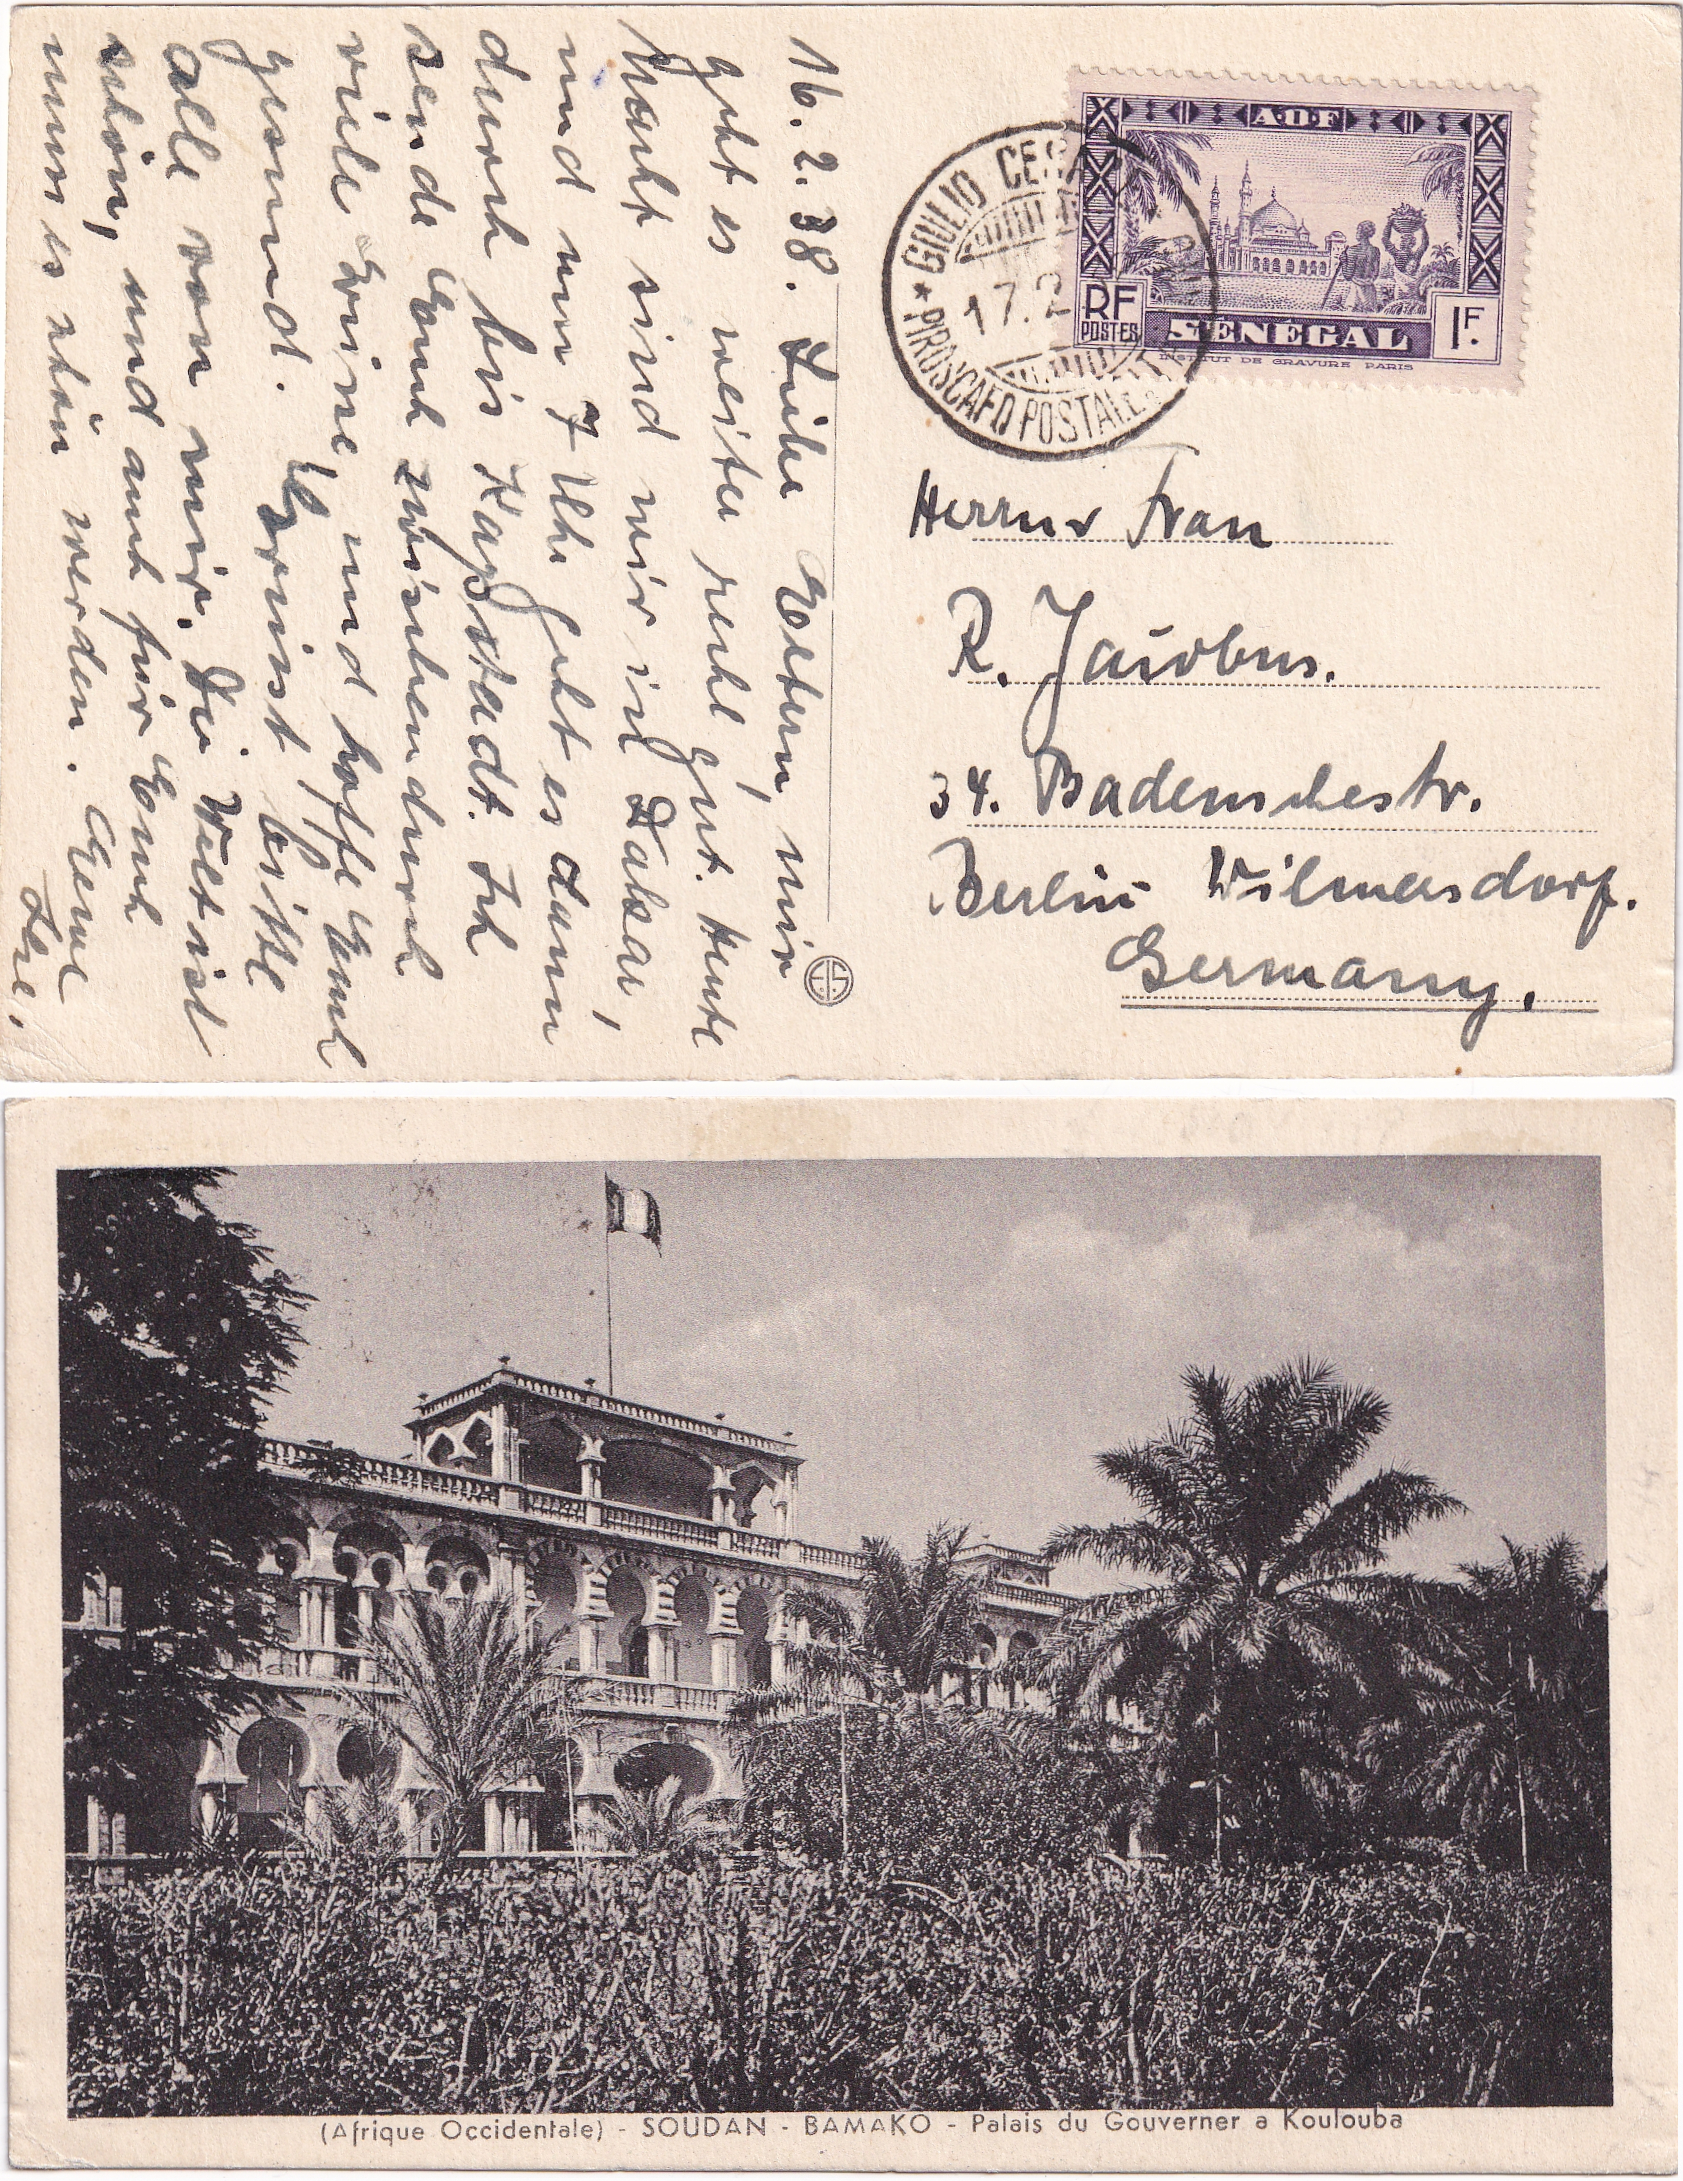 16. 2. 38. Liebe Eltern, mir
geht es weiter recht gut. Heute
Nacht sind wir in Dakar,
und um 7 Uhr geht es dann
durch bis Kapstadt. Ich
sende Euch zwischendurch
viele Grüsse, und hoffe Euch
gesund. Grüsst bitte
alle von mir. Die Welt ist
schön, und auch für Euch
muss es schön werden.
AOF
RF
POSTES
SÉNÉGAL
1F.
INSTITUT DE GRAVURE PARIS
GIULIO CESA
17.2
PIROSCAFO POSTALE
Herrn u Frau
R. Jacobus.
34. Badenschestr.
Berlin Wilmersdorf.
Germany.
(Afrique Occidentale) - SOUDAN - BAMAKO - Palais du Gouverner a Koulouba